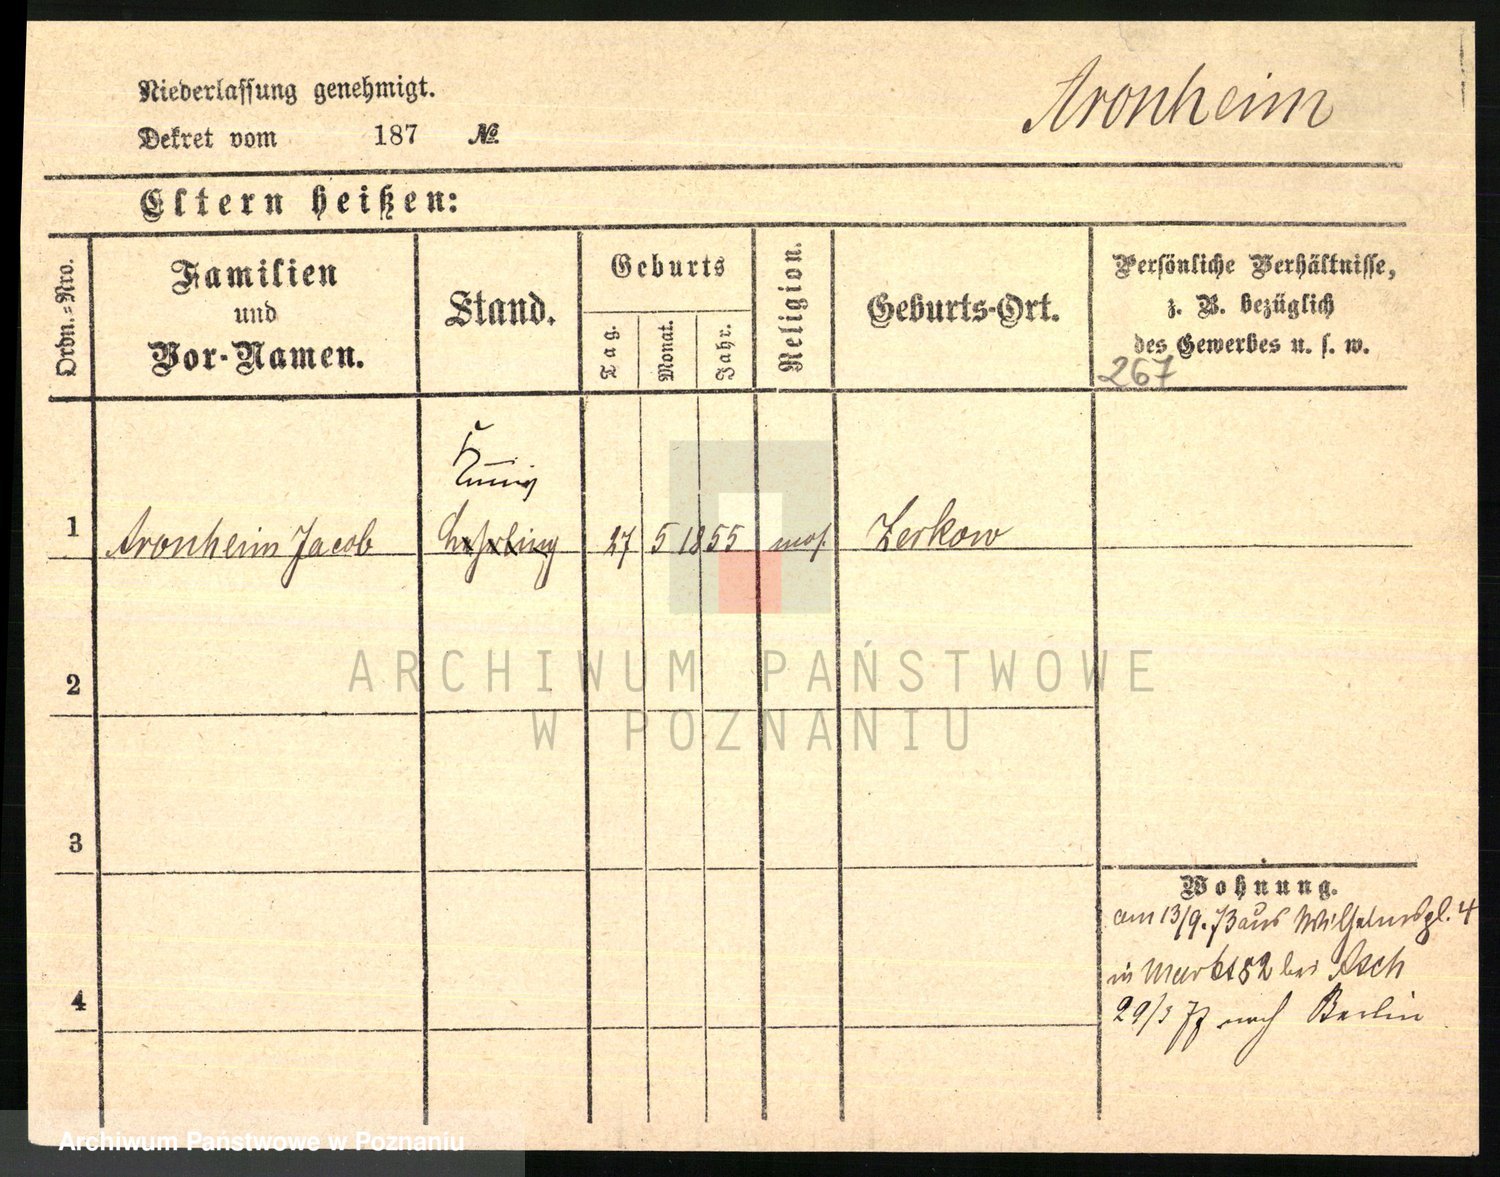 Niederlassung genehmigt.
Dekret vom 187 No.
Aronheim
Eltern heißen:
Ordn.-Nro.
Familien
und
Vor-Namen.
Stand.
Geburts
Tag.
Monat.
Jahr.
Religion.
Geburts-Ort.
Persönliche Verhältnisse,
z. B. bezüglich
des Gewerbes u. s. w.
267
1 Aronheim Jacob Lehrling 27 5 1855 mos. Zerkow
2
3
4
Wohnung.
am 13/9.73 aus Wilhelmspl. 4
in Markt 82 bei Asch
29/3 77 nach Berlin
ARCHIWUM PAŃSTWOWE
W POZNANIU
Archiwum Państwowe w Poznaniu